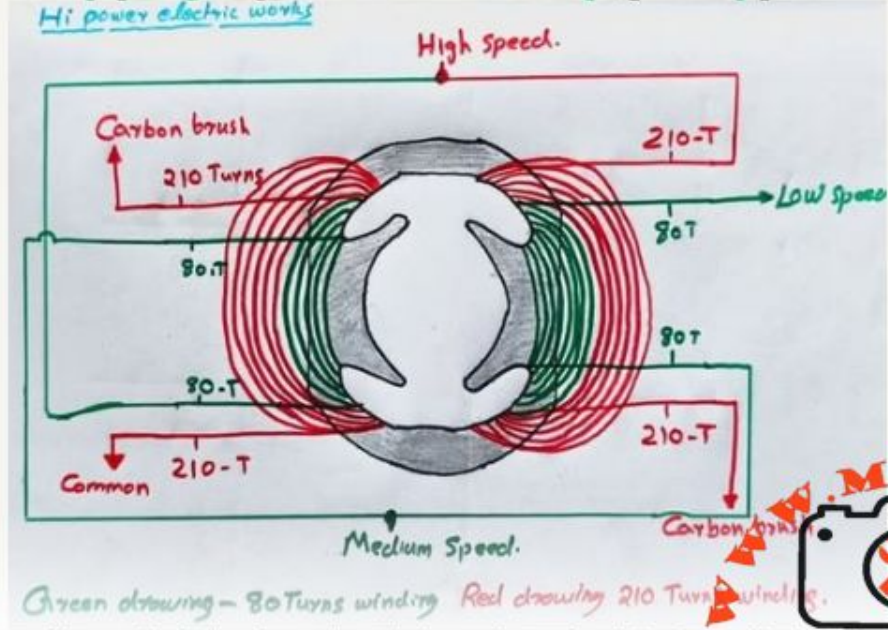 Hi power electric works
High Speed.
Carbon brush
210 Turns
210-T
Low Speed
80T
80.T
80T
80.-T
210-T
210-T
Common
Carbon brush
Medium Speed.
Green drowing - 80 Turns winding Red drowing 210 Turns winding.
WWW.M